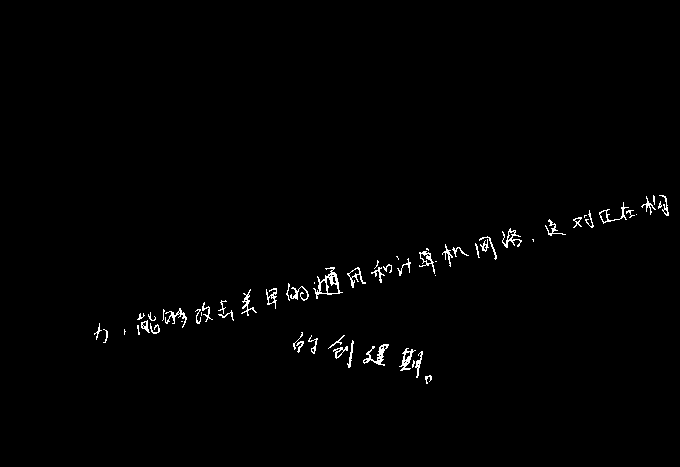 力，能够攻击美军的通风和计算机网络，这对正在构
的创建期。